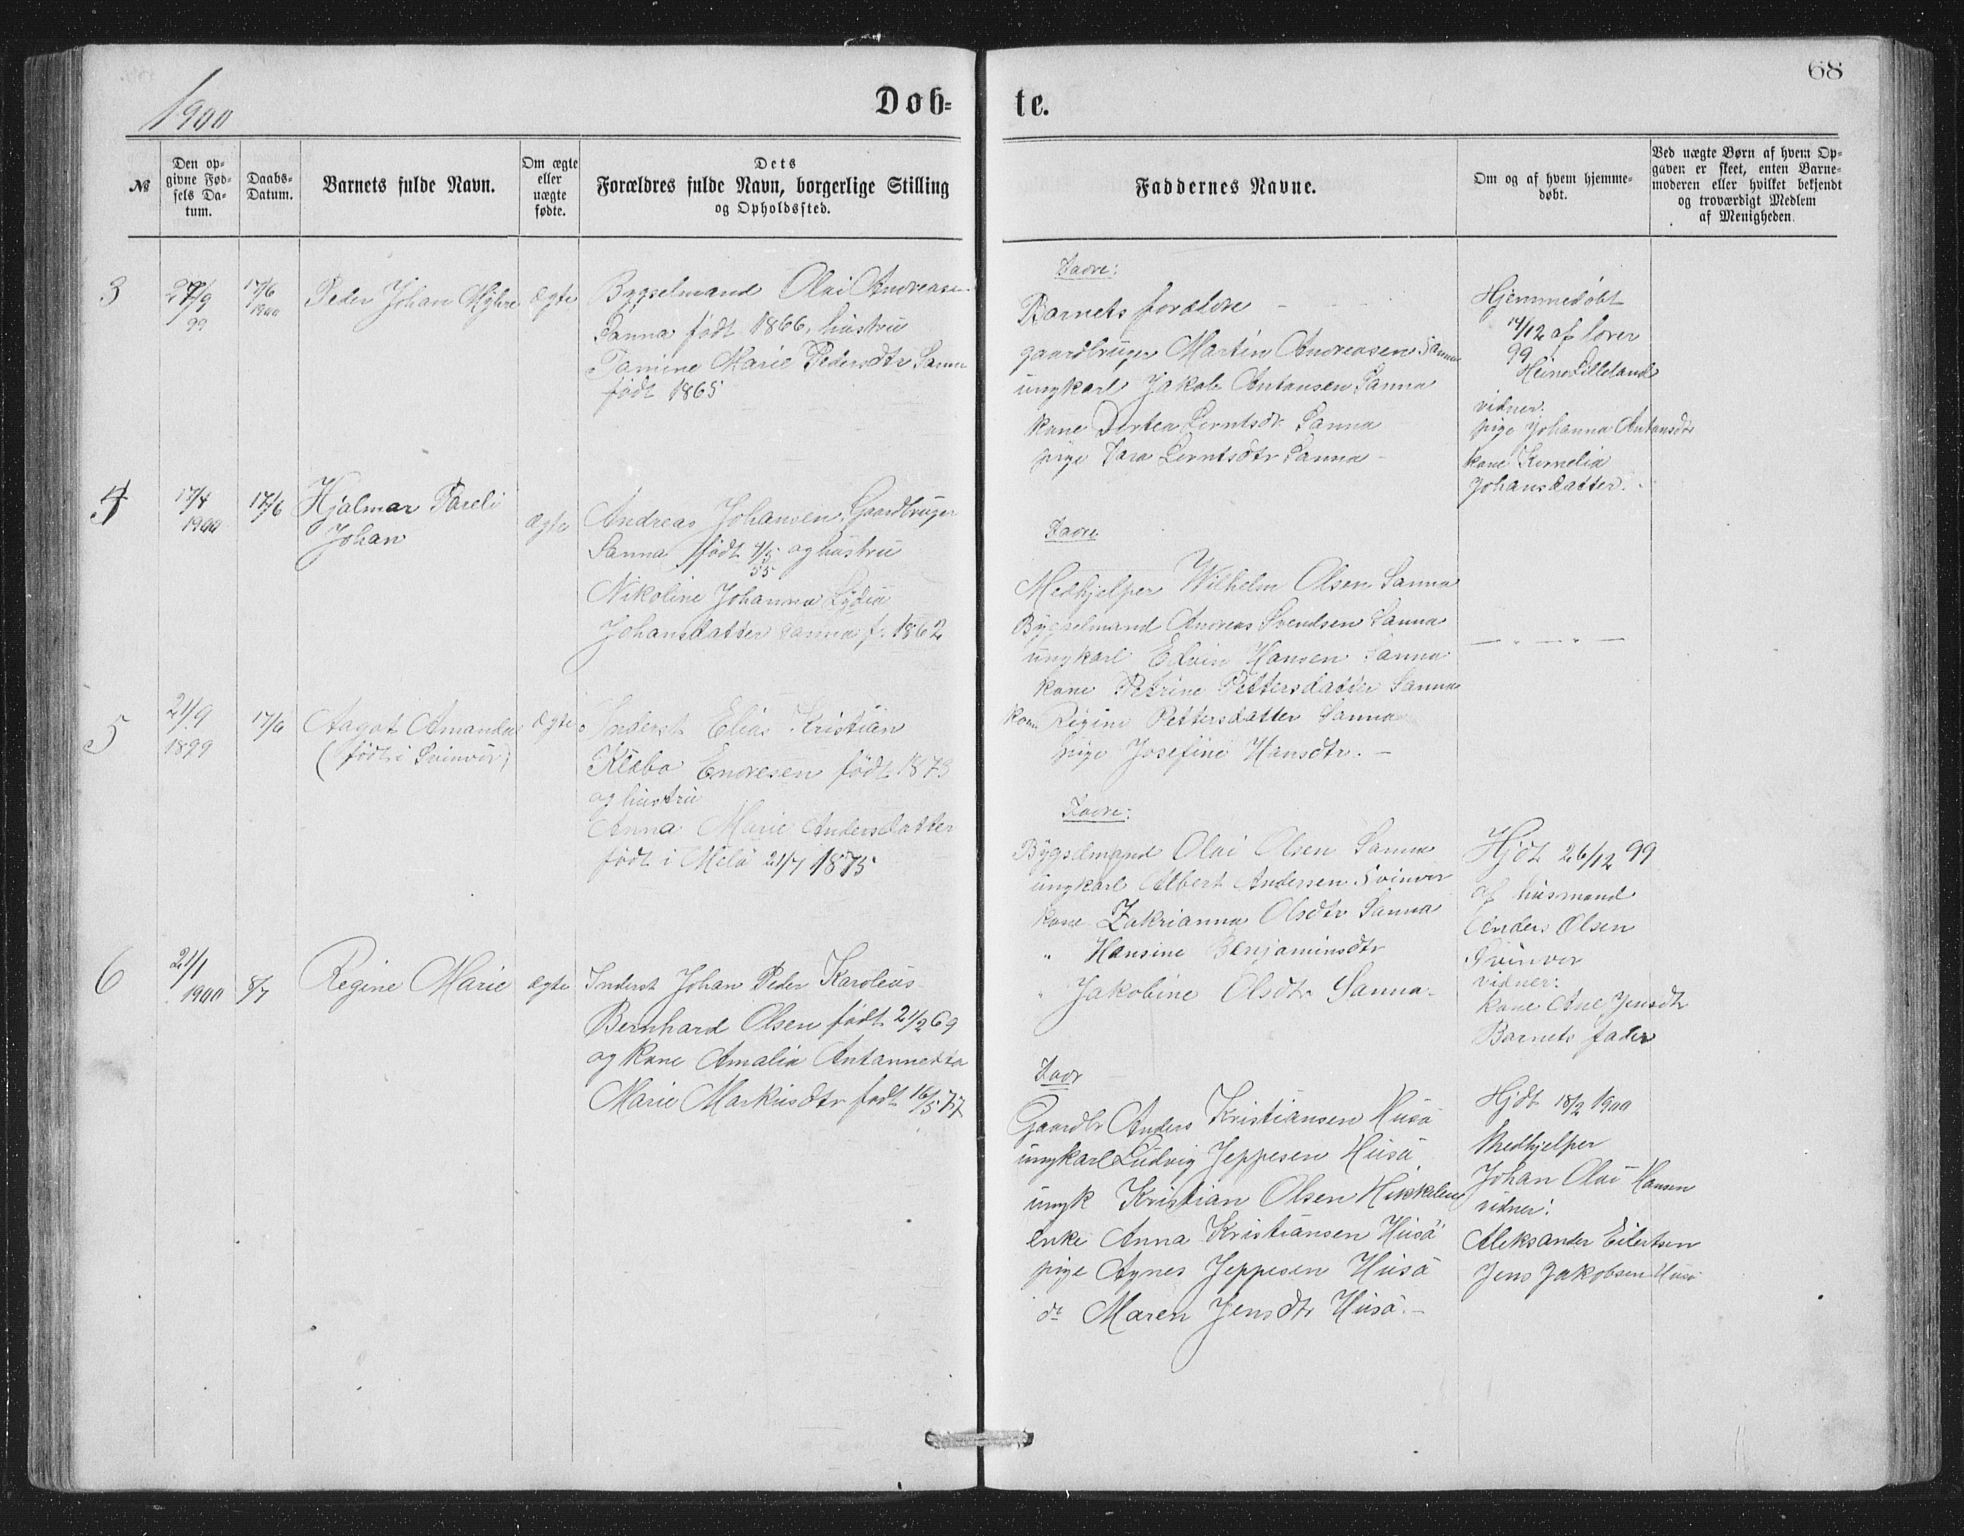 68
1900
Døb-
te.
№
Den op-
givne Fød-
sels Da-
tum.
Daabs-
Datum.
Barnets fulde Navn.
Om ægte
eller
uægte
fødte.
Dets
Forældres fulde Navn, borgerlige Stilling
og Opholdssted.
Faddernes Navne.
Om og af hvem hjemme-
døbt.
Ved uægte Børn af hvem Op-
gaven er skeet, enten Barne-
moderen eller hvilket bekjendt
og troværdigt Medlem
af Menigheden.
3
99
17/6
1900
Peder Johan
ægte
Bygselmand Olai Andreasen
Sanna født 1866, hustru
Marie Pedersdtr Sanna
født 1865
Fadre:
Barnets forældre
gaardbruger Martin Andreasen Sanna
ungkarl Jakob Antonsen Sanna
kone Dortea Berntsdtr Sanna
pige Berntsdtr Sanna
Hjemmedøbt
14/12 af lærer
99
Heine Lilleland
vidner:
pige Johanna Antonsdtr
kone Kornelia
Johansdatter.
4
17/4
1900
17/6
Hjalmar Pareli
Johan
ægte
Andreas Johansen, Gaardbruger
Sanna født 4/5 og hustru
55
Nikoline Johanna Lydia
Johansdatter Sanna f. 1862
Fadre
Medhjelper Wilhelm Olsen Sanna
Bygselmand Andreas Svendsen Sanna
ungkarl Edvin Hansen Sanna
kone Petrine Pettersdatter Sanna
kone Regine Pettersdatter Sanna
pige Josefine Hansdtr.
5
21/9
1899
17/6
Aagot Amanda
(født i Svinvær)
ægte
Inderst Elias Kristian
Klæbo Endresen født 1873
og hustru
Anna Marie Andersdatter
født i Melø 21/7 1875
Fadre:
Bygselmand Olai Olsen Sanna
ungkarl Albert Andersen Svinvær
kone Zakrianna Olsdtr Sanna
" Hansine Benjaminsdtr
" Jakobine Olsdtr Sanna.
Hjdt 26/12 99
af husmand
Anders Olsen
Svinvær
vidner:
kone Ane Jensdtr
Barnets fader
6
21/1
1900
8/7
Regine Marie
ægte
Inderst Johan Peder Karolius
Bernhard Olsen født 21/2 69
og kone Amalia
Marie Markusdtr født 16/5 77
Fadr
Gaardbr Anders Kristiansen Husø
ungkarl Ludvig Jeppesen Husø
ungk Kristian Olsen
enke Anna Kristiansen Husø
pige Agnes Jeppesen Husø
do Maren Jensdtr Husø.
Hjdt 18/2 1900
Medhjelper
Johan Olai Hansen
vidner:
Aleksander Eilertsen
Jens Jakobsen Husø